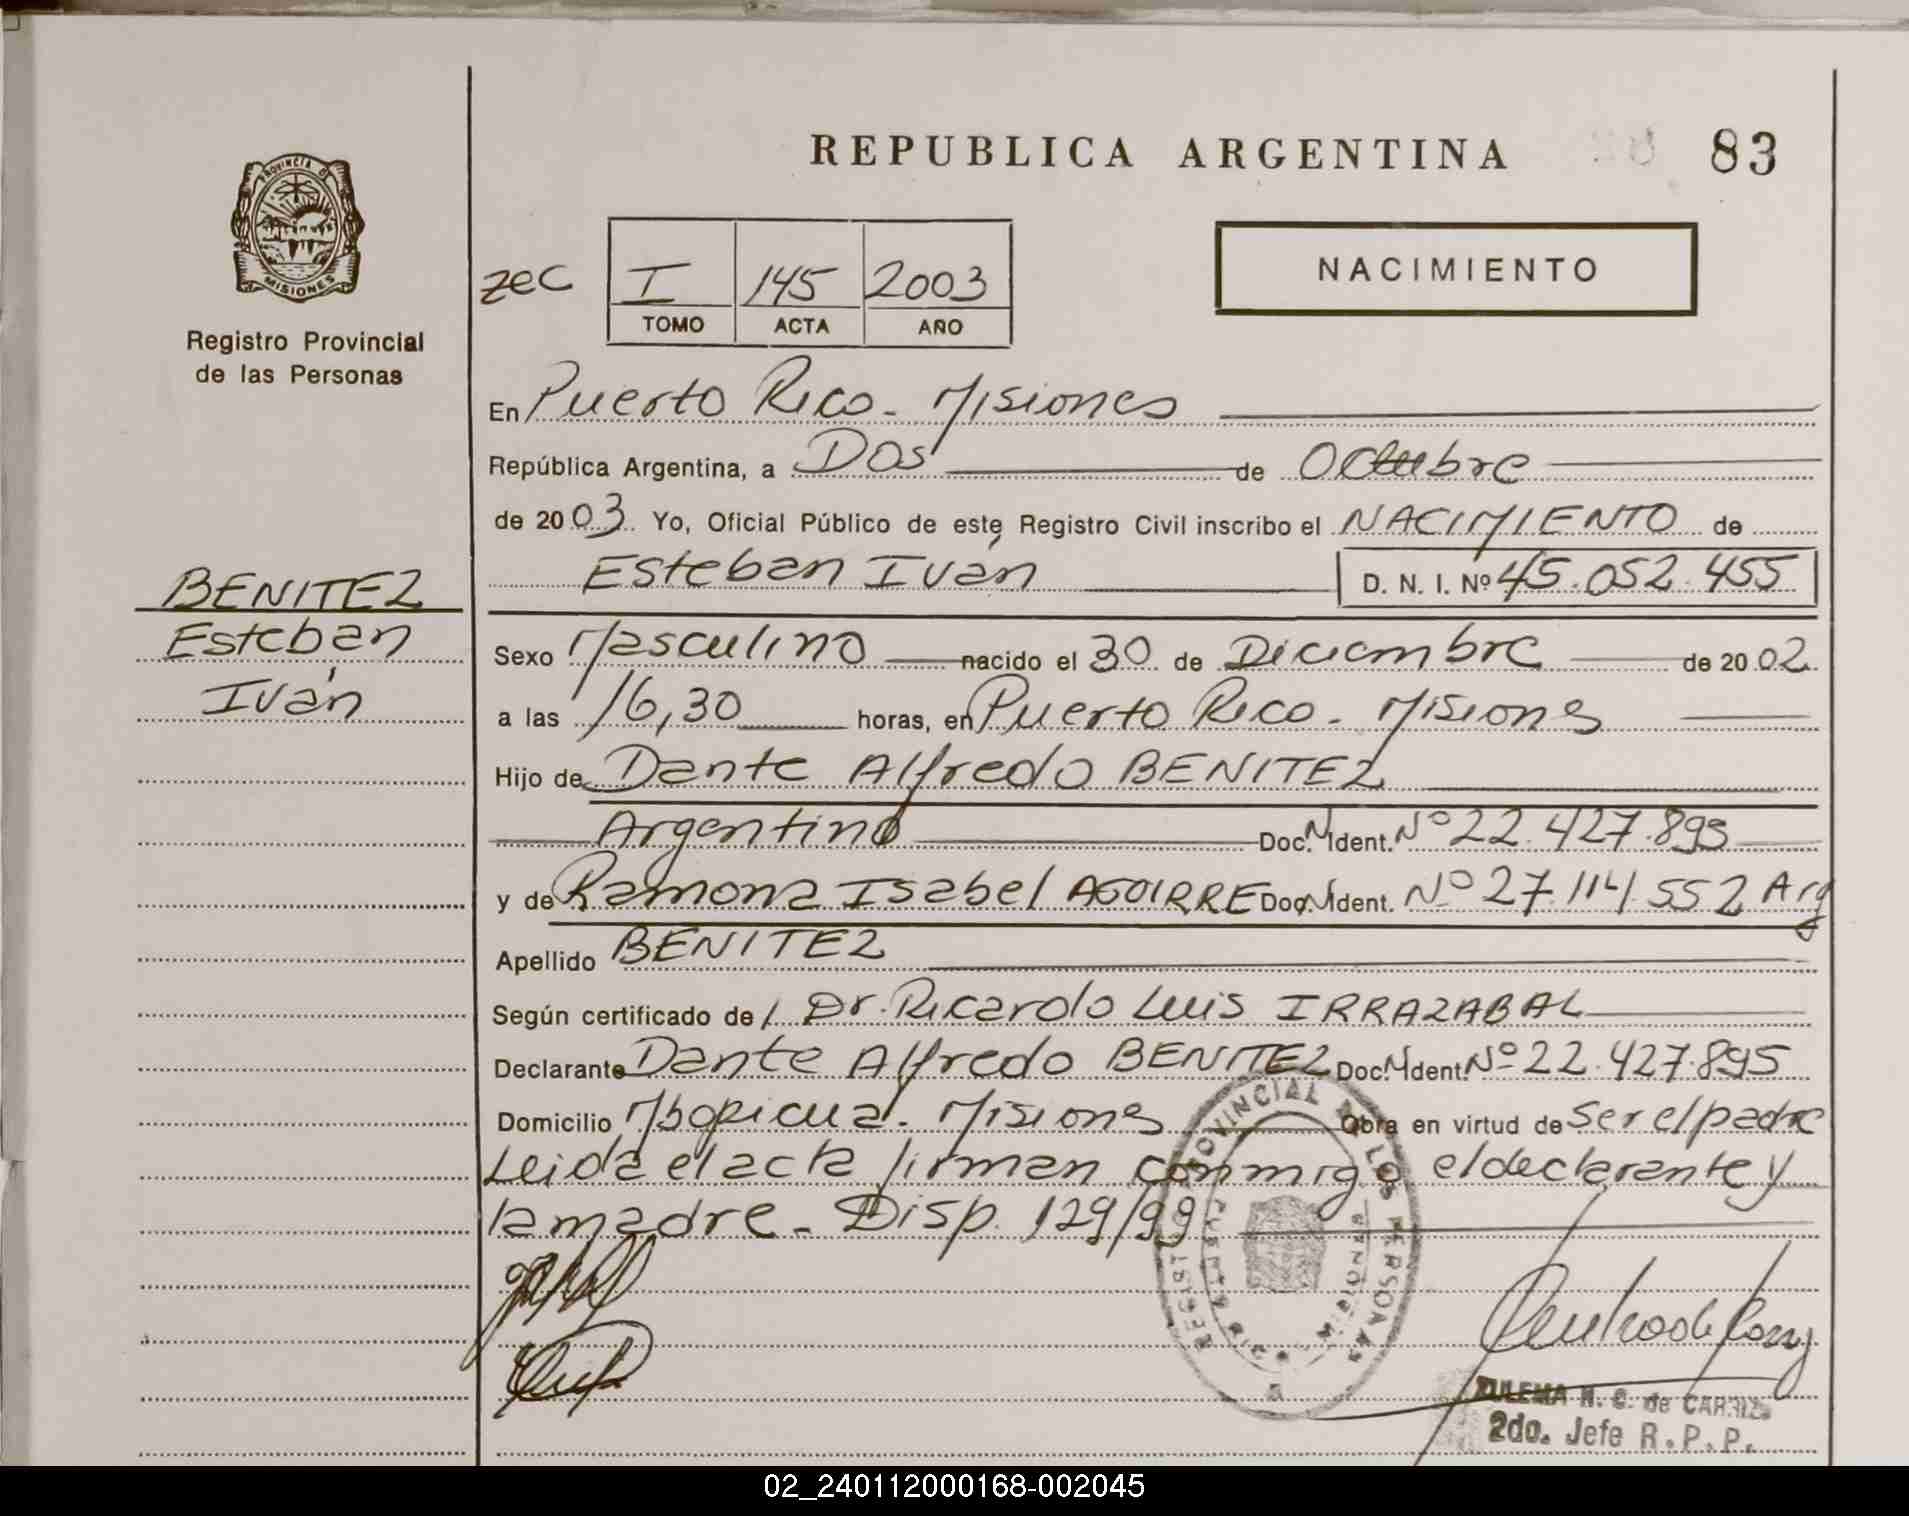 REPUBLICA ARGENTINA 83
PROVINCIA DE
MISIONES
Registro Provincial
de las Personas
zec I 145 2003
TOMO ACTA AÑO
NACIMIENTO
En Puerto Rico - Misiones
República Argentina, a Dos de Octubre
de 2003. Yo, Oficial Público de este Registro Civil inscribo el NACIMIENTO de
Esteban Iván D. N. I. Nº 45.052.455
BENITEZ
Esteban
Iván
Sexo Masculino nacido el 30 de Diciembre de 2002
a las 16,30 horas, en Puerto Rico - Misiones
Hijo de Dante Alfredo BENITEZ
Argentino Doc. N Ident. Nº 22.427.895
y de Ramona Isabel AGUIRRE Doc. N Ident. Nº 27.114.552 Arg
Apellido BENITEZ
Según certificado del Dr. Ricardo Luis IRRAZABAL
Declarante Dante Alfredo BENITEZ Doc. N Ident. Nº 22.427.895
Domicilio Mbopicuá - Misiones Obra en virtud de Ser el padre
Leida el acta firman conmigo el declarante y
la madre - Disp. 129/99
REGISTRO PROVINCIAL DE LAS PERSONAS
PUERTO RICO MISIONES
ZULEMA de
2do. Jefe R.P.P.
02_240112000168-002045